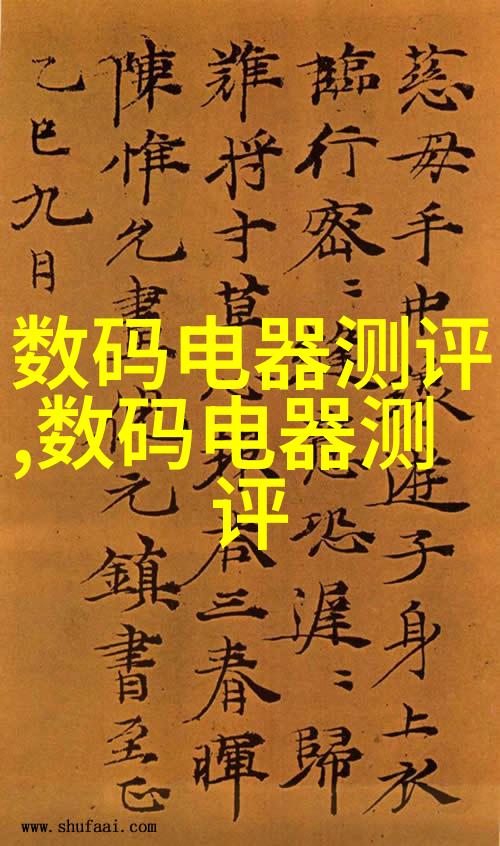 慈母手中遊子身上衣
臨行密〻意恐遲〻歸
難将寸草三春暉
陳惟允畫元鎮書至正
乙巳九月
数码电器测评
,数码电器测
评
www.shufaai.com